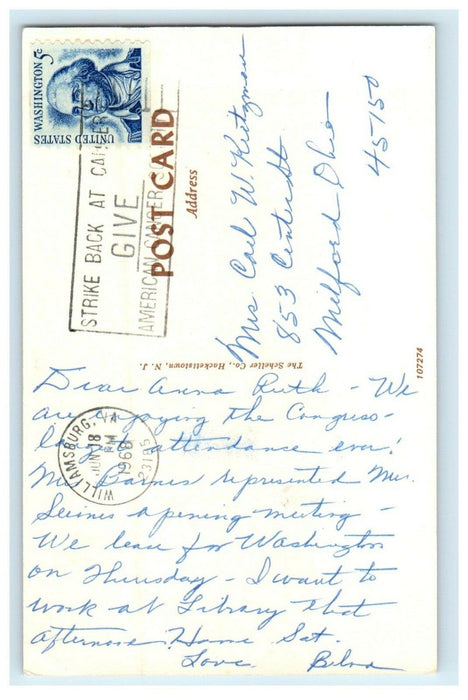 WASHINGTON 5c
UNITED STATES
STRIKE BACK AT CANCER
GIVE
AMERICAN CANCER
POST CARD
Address
Mrs. Carl W. Kietzman
853 Center St
Milford Ohio
45150
The Scheller Co., Hackettstown, N. J.
107274
WILLIAMSBURG, VA
JUN 18
PM
1968
23185
Dear Anna Ruth - We
are enjoying the Congress -
attendance ever!
Mrs Barnes represented Mrs.
opening meeting -
We leave for Washington
on Thursday - I want to
work at Library that
afternoon. Home Sat.
Love Belva